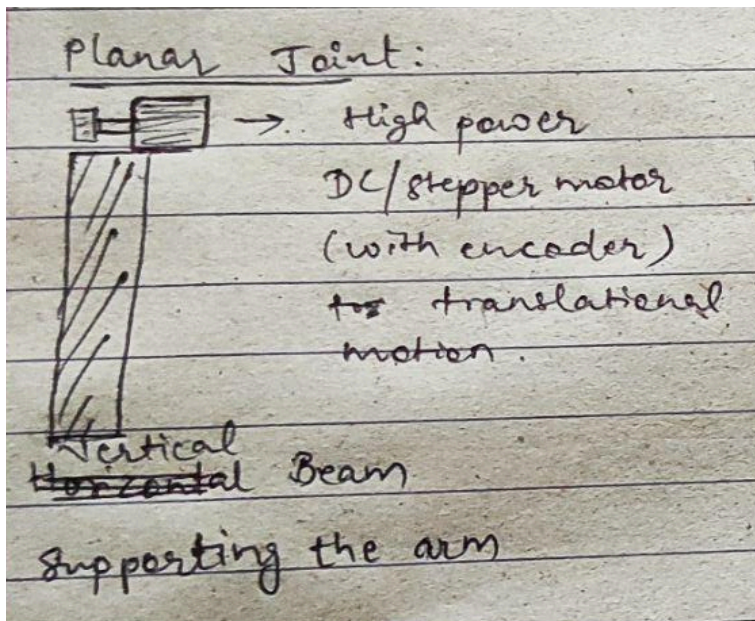 Planar Joint:
→ High power
DC/stepper motor
(with encoder)
translational
motion.
Vertical
Beam
supporting the arm